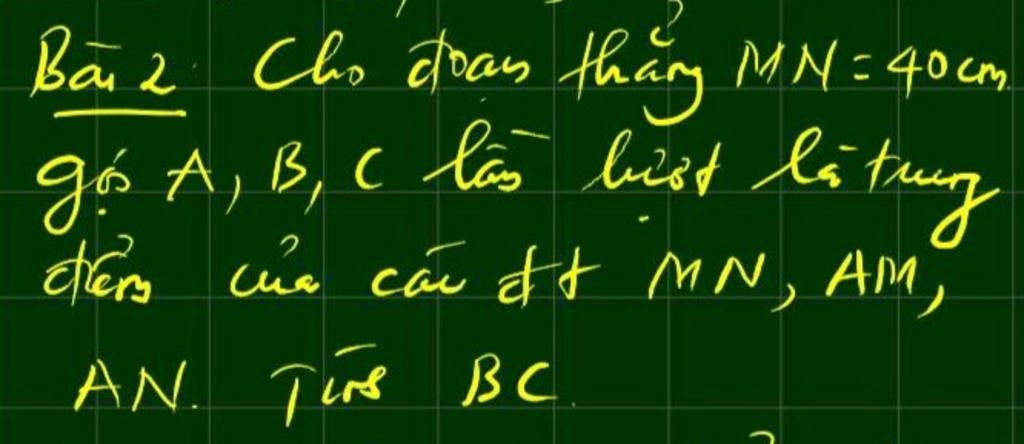 Bài 2. Cho đoạn thẳng MN = 40cm.
gọi A, B, C lần lượt là trung
điểm của các đt MN, AM,
AN. Tính BC.